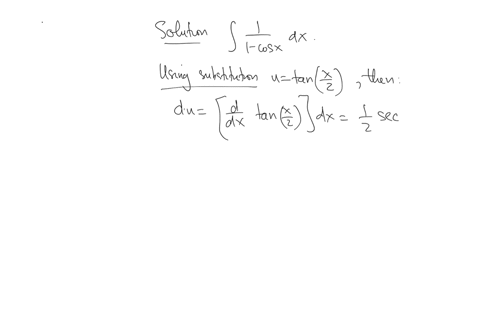 Solution ∫ 1/(1-cosx) dx.
Using substitution u=tan(x/2), then:
du= [d/dx tan(x/2)]dx = 1/2 sec